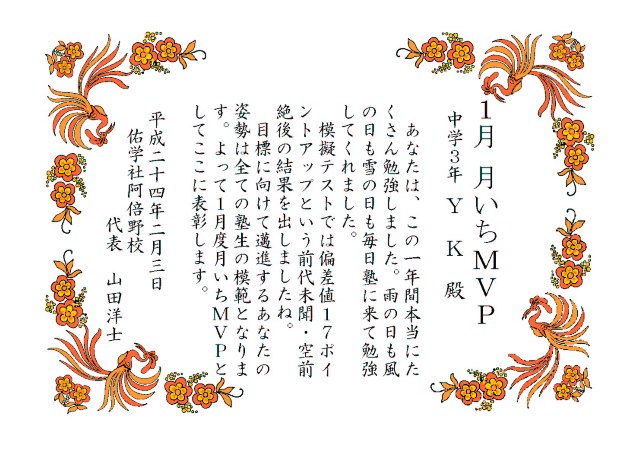 1月 月いちMVP
中学3年 Y K 殿
あなたは、この一年間本当にた
くさん勉強しました。雨の日も風
の日も雪の日も毎日塾に来て勉強
してくれました。
模擬テストでは偏差値17ポイ
ントアップという前代未聞・空前
絶後の結果を出しましたね。
目標に向けて邁進するあなたの
姿勢は全ての塾生の模範となりま
す。よって1月度月いちMVPと
してここに表彰します。
平成二十四年二月三日
佑学社阿倍野校
代表 山田洋士